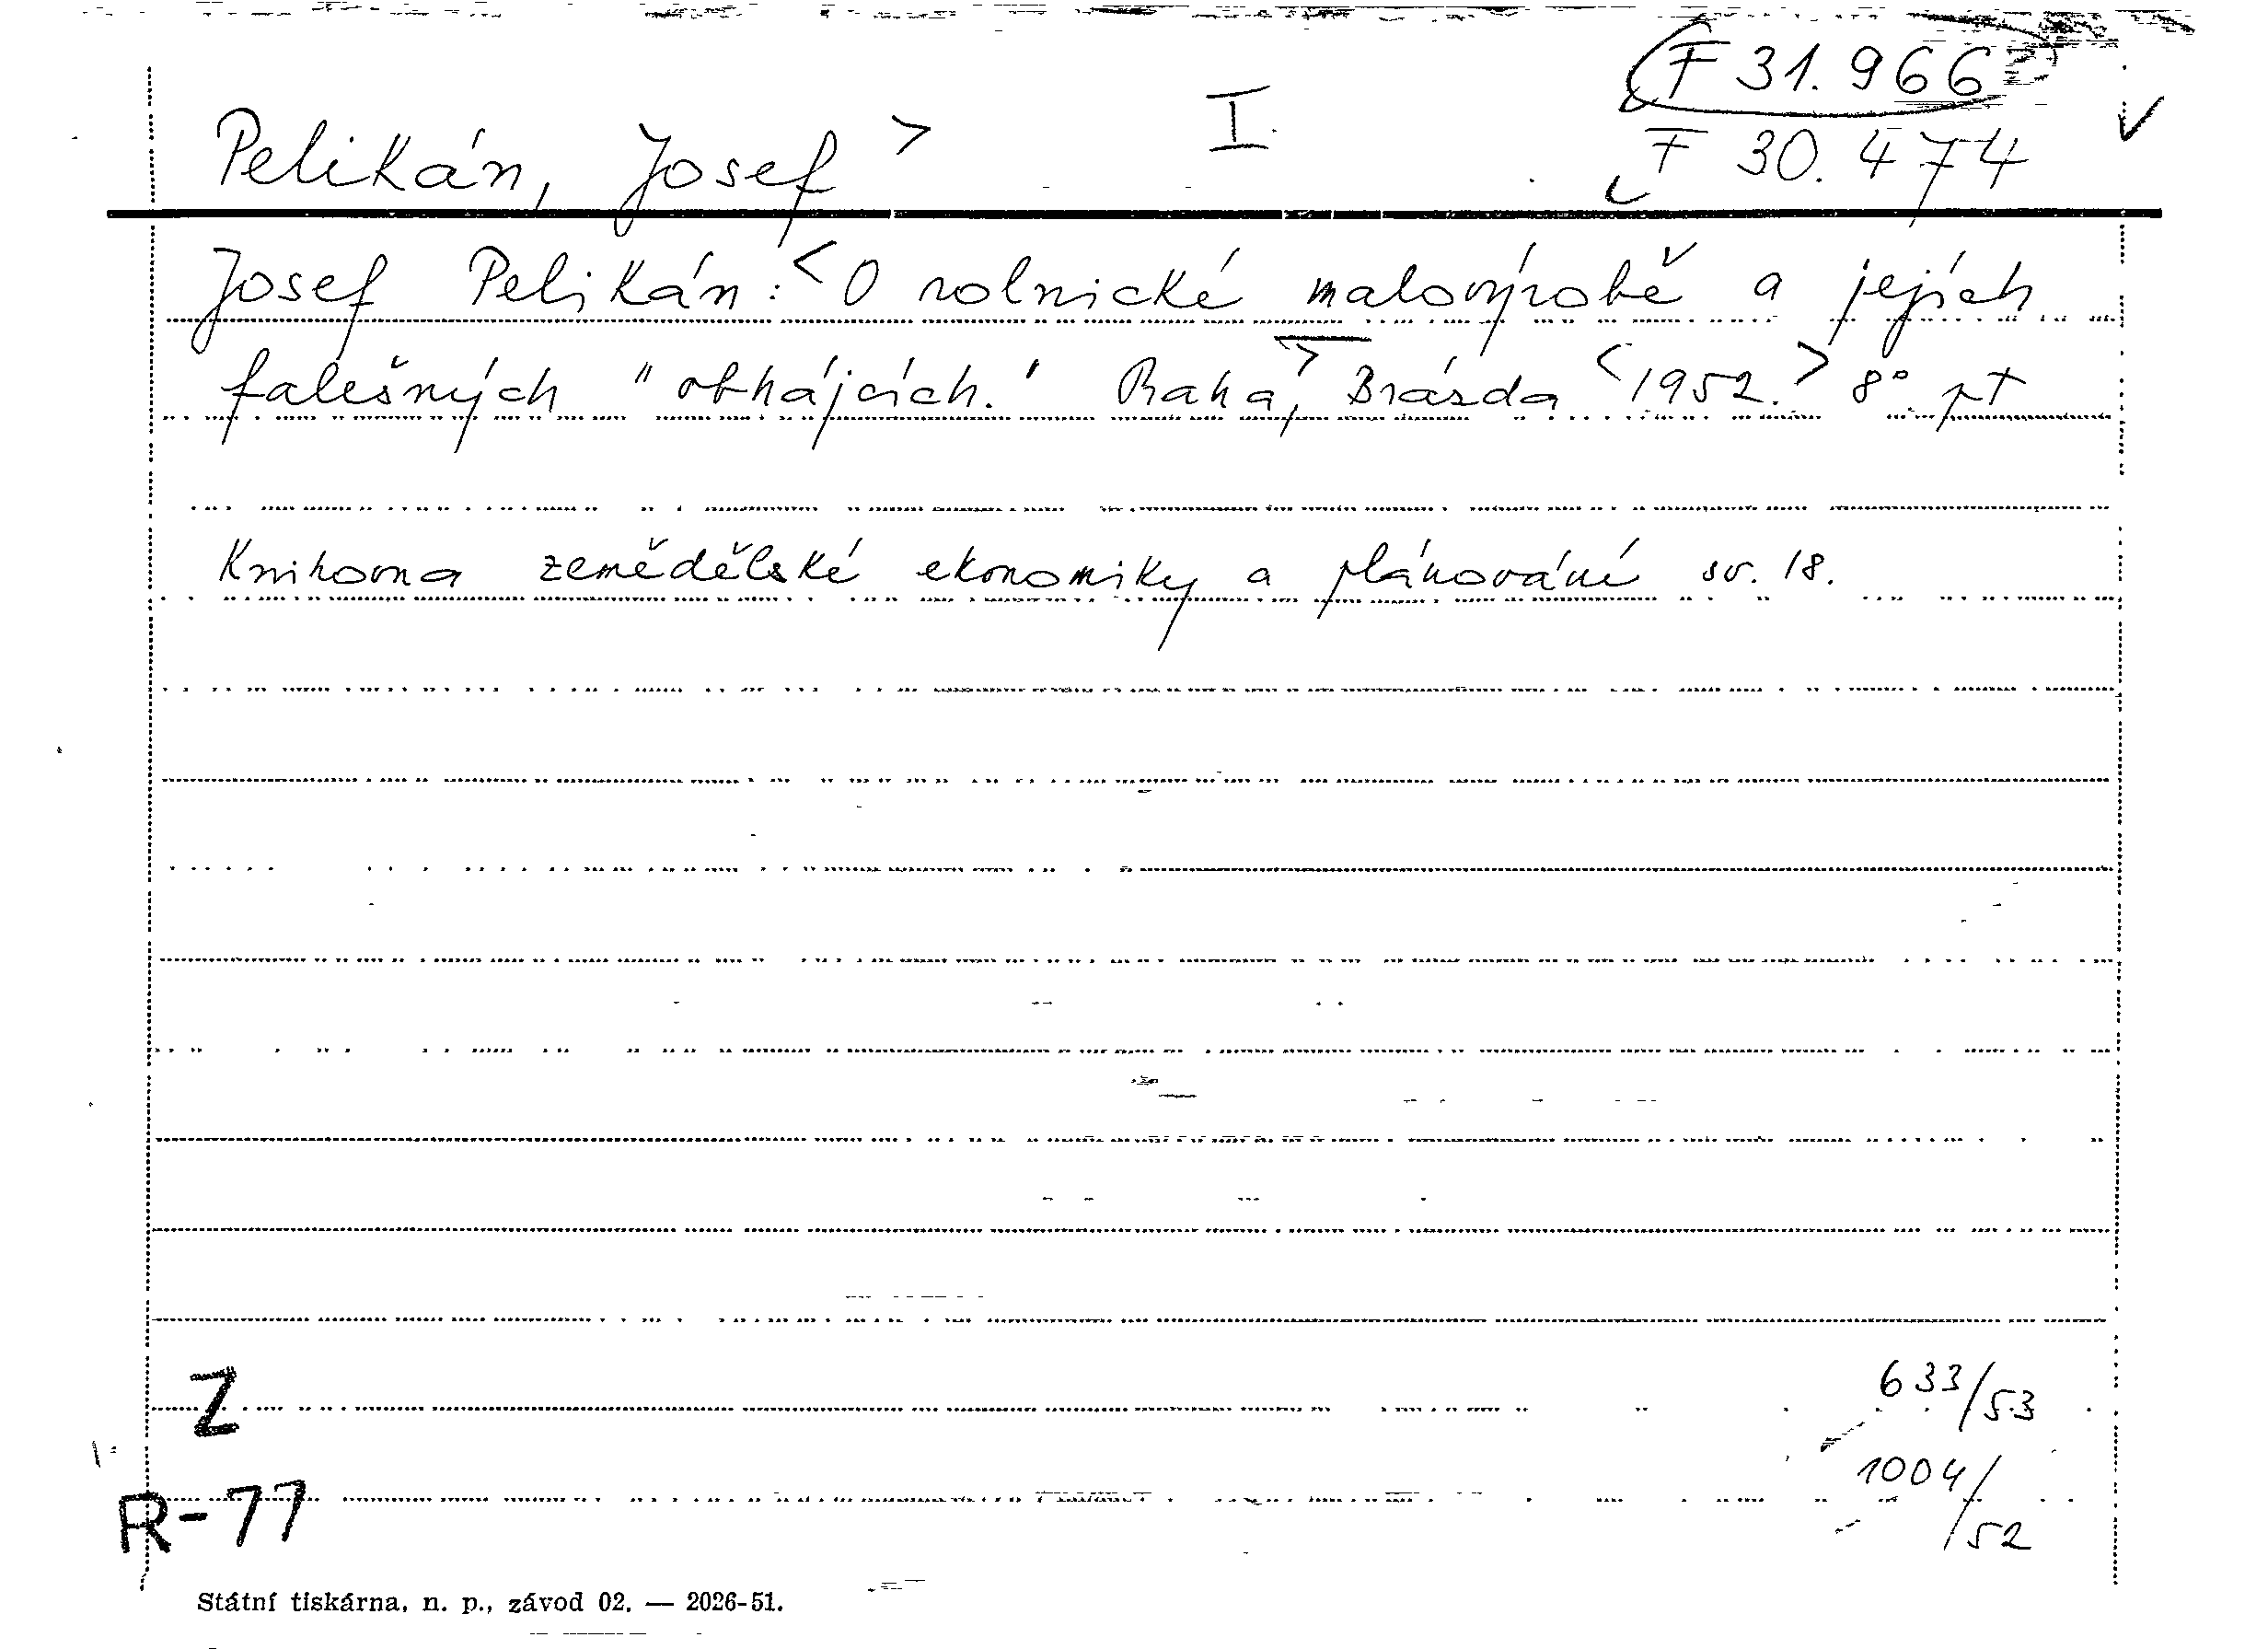 F 31.966
Pelikán, Josef > I F 30.474
Josef Pelikán: < O rolnické malovýrobě a jejích
falešných "obhájcích." Praha, > Brázda < 1952. > 8° pt
Knihovna zemědělské ekonomiky a plánování sv. 18.
Z
633/53
1004/52
R-77
Státní tiskárna, n. p., závod 02. — 2026-51.